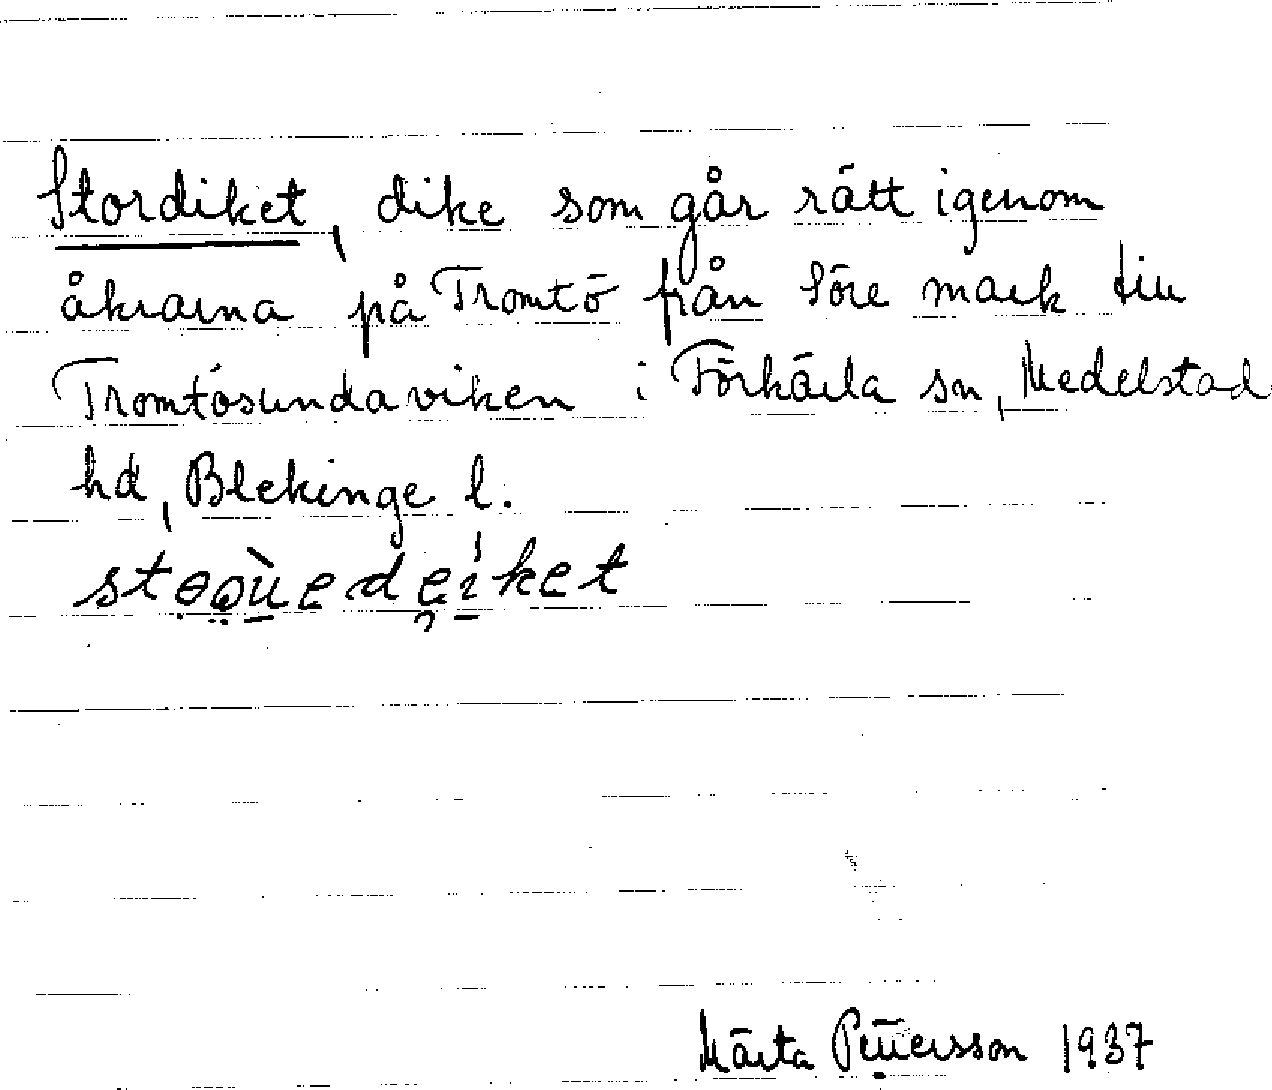 Stordiket, dike som går rätt igenom
åkrarna på Tromtö från Söre mark till
Tromtösundaviken i Förkärla sn, Medelstad
hd, Blekinge l.
Märta Pettersson 1937